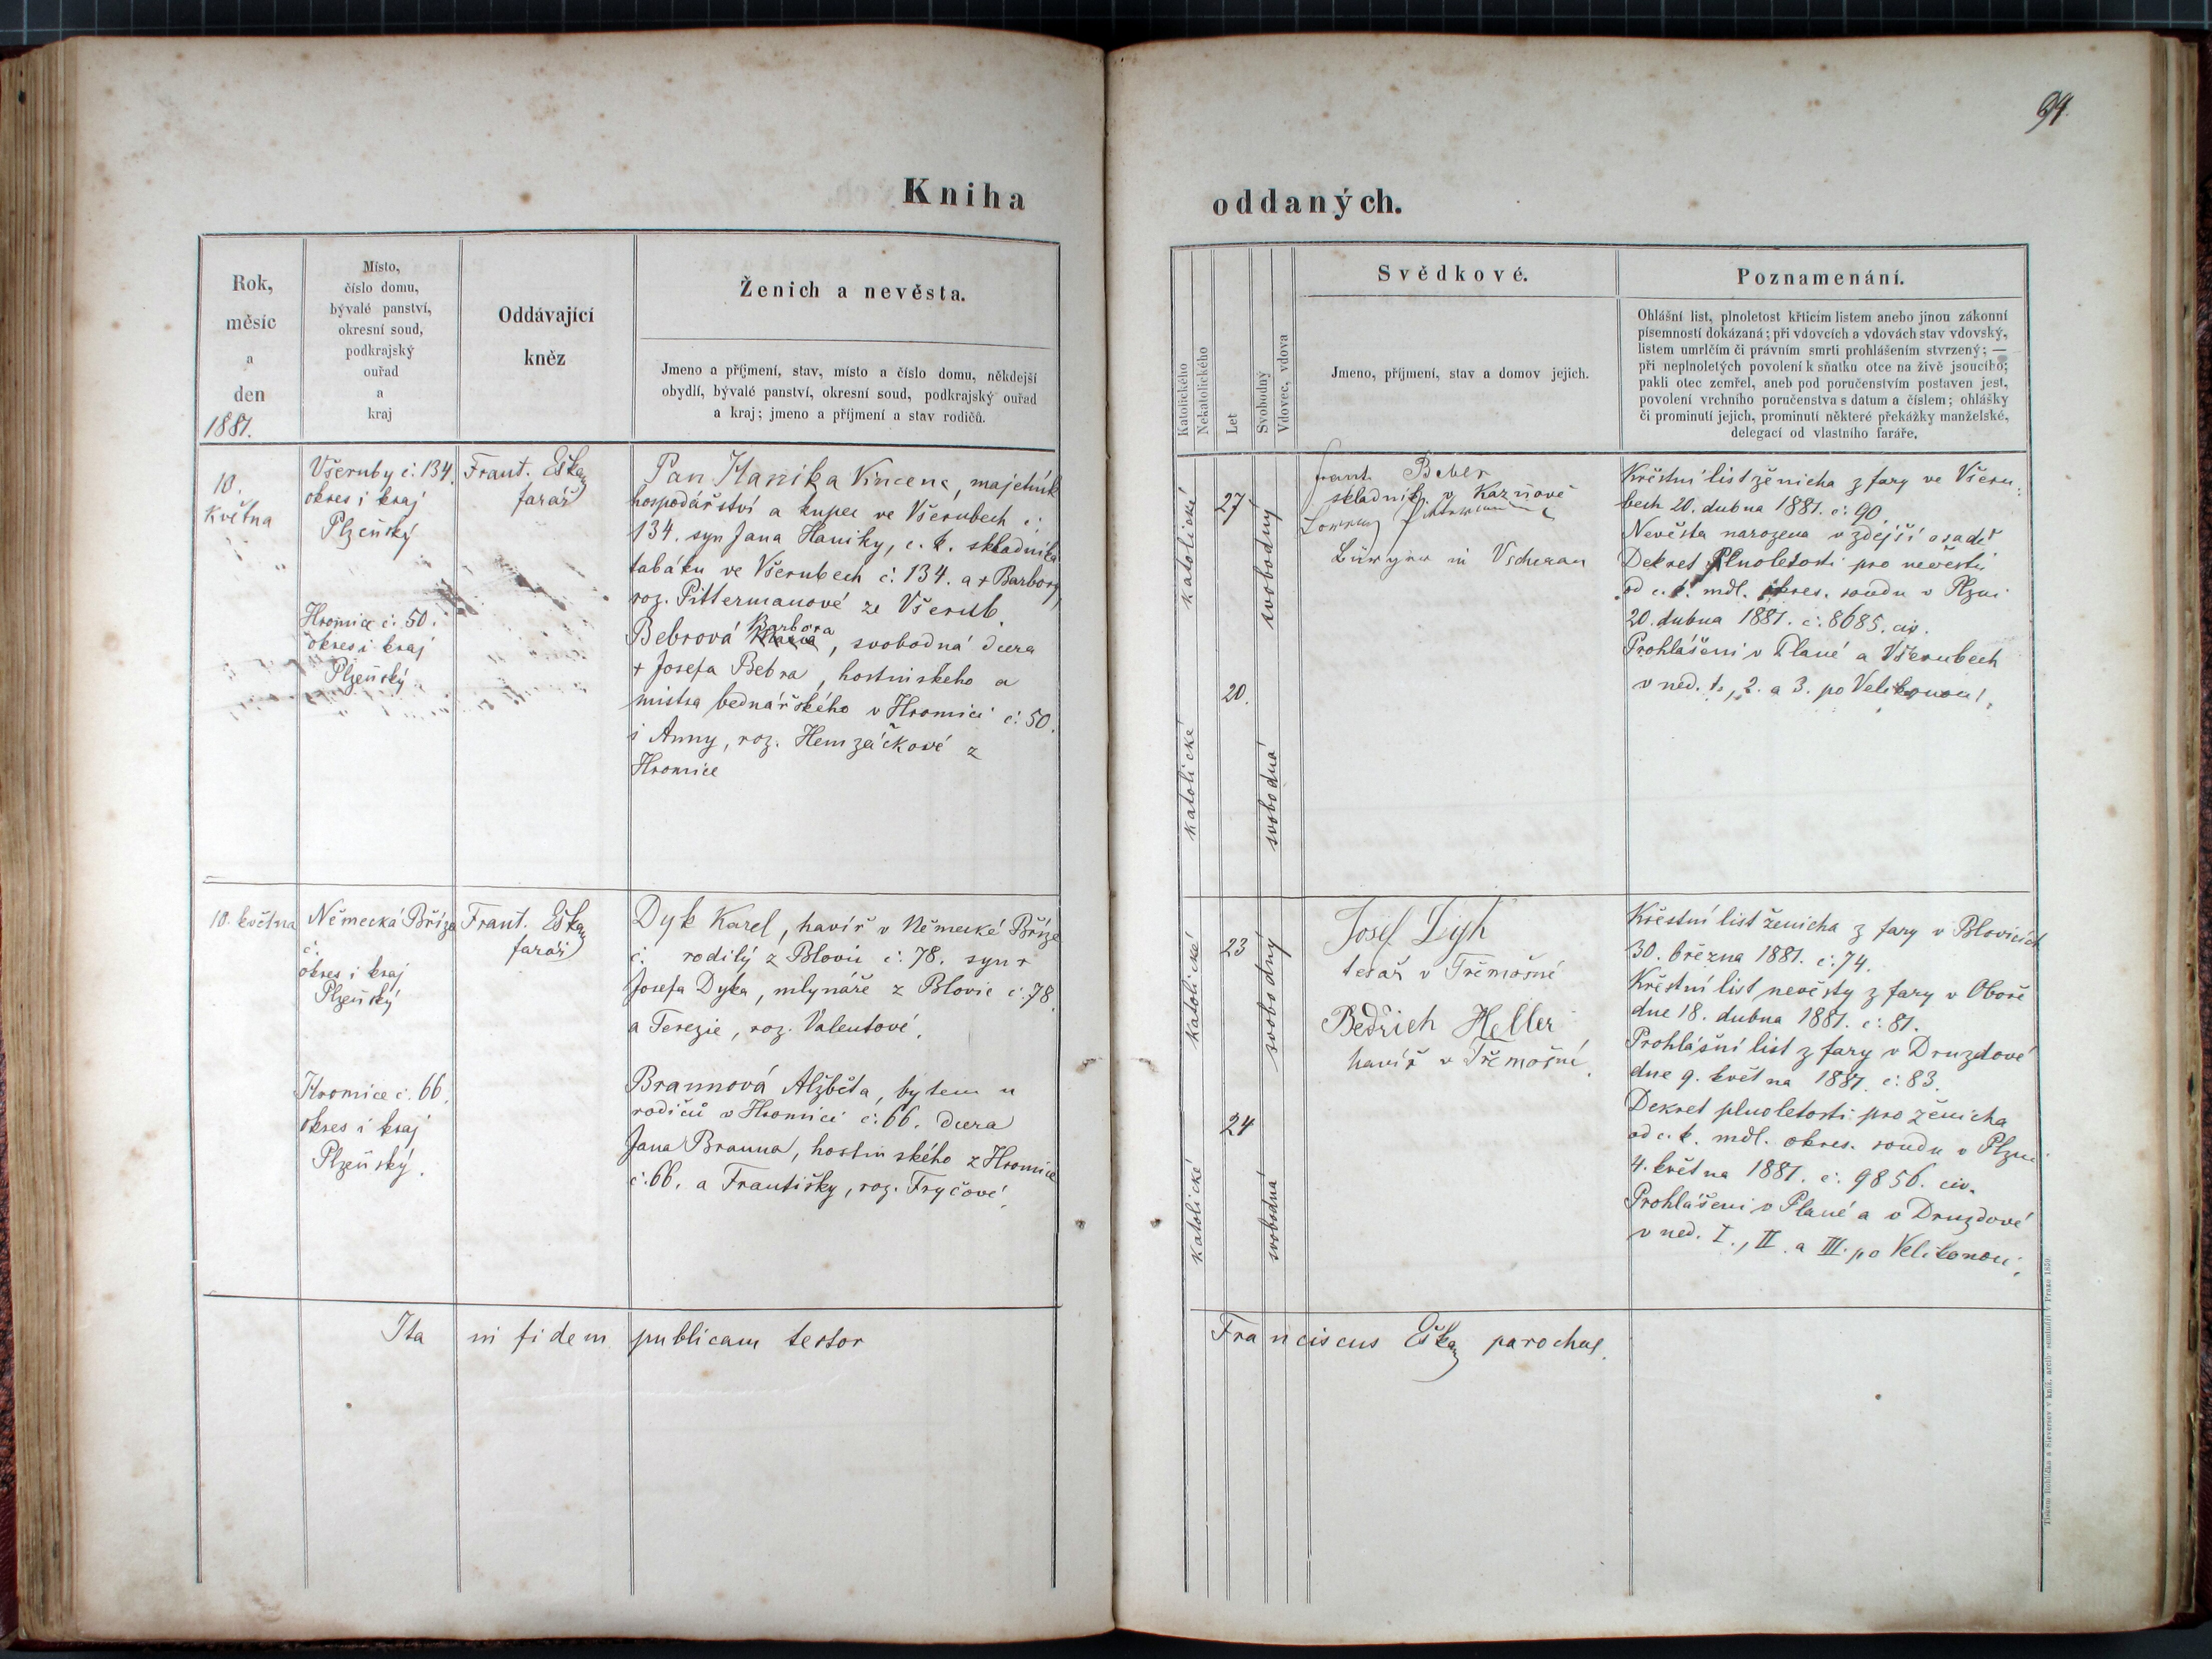 94.
Kniha
oddaných.
Rok,
měsíc
a
den
1881.
Místo,
číslo domu,
bývalé panství,
okresní soud,
podkrajský
ouřad
a
kraj
Oddávající
kněz
Ženich a nevěsta.
Jmeno a příjmení, stav, místo a číslo domu, někdejší
obydlí, bývalé panství, okresní soud, podkrajský ouřad
a kraj; jmeno a příjmení a stav rodičů.
Katolického
Nekatolického
Let
Svobodný
Vdovec, vdova
Svědkové.
Jmeno, příjmení, stav a domov jejich.
Poznamenání.
Ohlášní list, plnoletost křticím listem anebo jinou zákonní
písemností dokázaná; při vdovcích a vdovách stav vdovský,
listem umrlčím či právním smrti prohlášením stvrzený; —
při neplnoletých povolení k sňatku otce na živě jsoucího;
pakli otec zemřel, aneb pod poručenstvím postaven jest,
povolení vrchního poručenstva s datum a číslem; ohlášky
či prominutí jejich, prominutí některé překážky manželské,
delegací od vlastního faráře.
10.
Května
Všeruby č. 134.
okres i kraj
Plzeňský
Hromice č. 50.
okres i kraj
Plzeňský
Frant. Eška
farář
Pan Hanika Vincenc, majetník
hospodářství a kupec ve Všerubech č.
134. syn Jana Haniky, c. k. skladníka
tabáku ve Všerubech č. 134. a + Barbory,
roz. Pittermanové ze Všerub.
Barbora
Bebrová, svobodná dcera
+ Josefa Bebra, hostinského a
mistra bednářského v Hromici č. 50.
i Anny, roz. Hemzáčkové z
Hromice
katolické
katolické
27
20.
svobodný
svobodná
Frant. Beber
skladník v Kazňově
Bürger in Wscherau
Křestní list ženicha z fary ve Všeru-
bech 20. dubna 1881. č. 90
Nevěsta narozena v zdejší osadě
Dekret plnoletosti pro nevěstu
od c. k. mdl. okres. soudu v Plzni
20. dubna 1881. č. 8685. civ.
Prohlášeni v Plané a Všerubech
v ned. 1., 2. a 3. po Velikonoci.
10. května
Německá Bříza
č.
okres i kraj
Plzeňský
Hromice č. 66.
okres i kraj
Plzeňský.
Frant. Eška
farář
Dyk Karel, havíř v Německé Bříze
č. rodilý z Blovic č. 78. syn +
Josefa Dyka, mlynáře z Blovic č. 78.
a Terezie, roz. Valentové.
Braunová Alžběta, bytem u
rodičů v Hromici č. 66. dcera
Jana Brauna, hostinského z Hromice
č. 66. a Františky, roz. Fryčové.
katolické
katolické
23
24
svobodný
svobodná
Josef
tesař v Třemošné
Bedřich Heller
havíř v Třemošné.
Křestní list ženicha z fary v Blovicích
30. března 1881. č. 74.
Křestní list nevěsty z fary v Oboře
dne 18. dubna 1881. č. 81.
Prohlášní list z fary v Druzdové
dne 9. května 1881. č. 83.
Dekret plnoletosti pro ženicha
od c. k. mdl. okres. soudu v Plzni
4. května 1881. č. 9856. civ.
Prohlášeni v Plané a v Druzdové
v ned. I., II. a III. po Velikonoci.
Ita in fidem publicam testor
Franciscus Eška parochus.